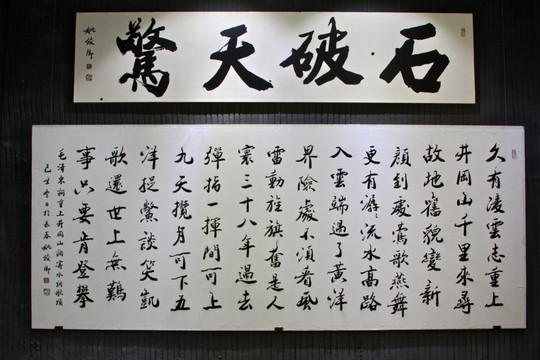 石破天驚
姚俊卿
久有凌雲志重上
井岡山千里來尋
故地舊貌變新
顔到處鶯歌燕舞
更有潺々流水高路
入雲端過了黃洋
界險處不須看風
雷動旌旗奮是人
寰三十八年過去
彈指一揮間可上
九天攬月可下五
洋捉鱉談笑凱
歌還世上無難
事只要肯登攀
毛澤東詞重上井岡山調寄水調歌頭
己丑於長春姚俊卿